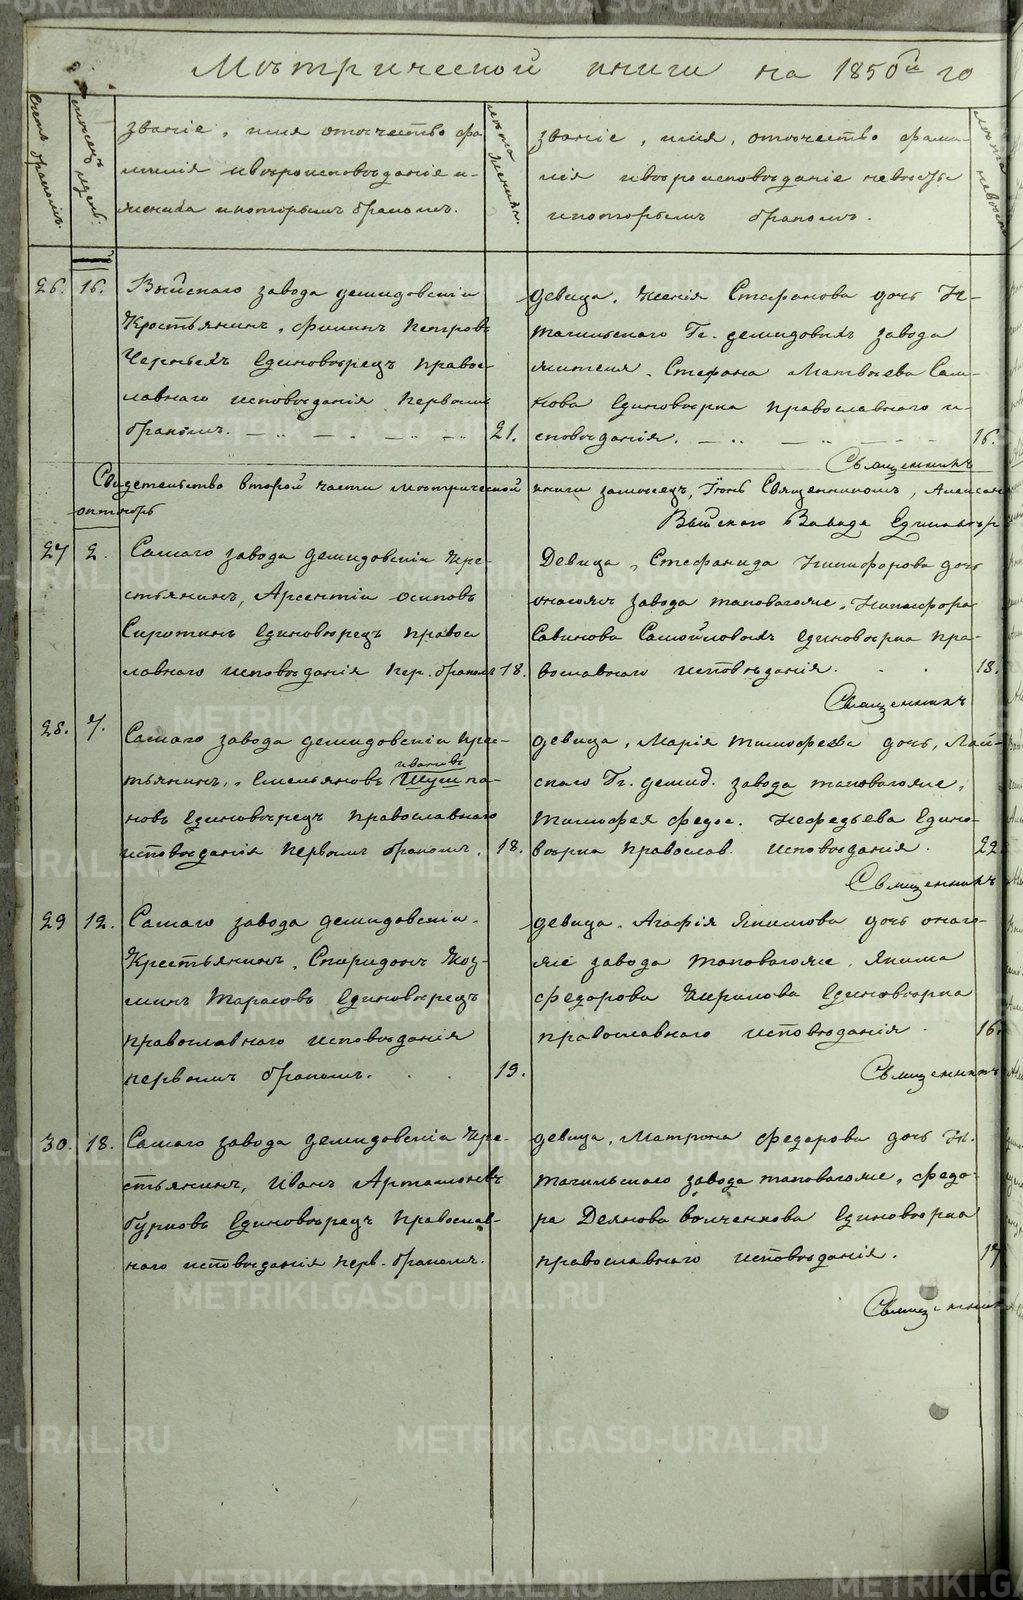 Мѣтрической книги на 1850й го
Счетъ браковъ.
Мѣсецъ и день.
званіе, имя отъчество фа
милія ивѣроисповѣданіе и-
жениха икоторымъ бракомъ.
лѣта жениха.
званіе, имя, отъчество фами-
лія ивѣроисповѣданіе невѣсты
икоторымъ бракомъ.
лѣта невѣсты
26. 16. Выйскаго завода демидовскіи
Крестьянинъ, Филипъ Петровъ
Черныхъ Единовѣрецъ правос-
лавнаго исповѣданія первымъ
бракомъ. 21.
девица, Ксенія Стефанова дочь Н-
тагильскаго Гг. демидовыхъ завода
жителя. Стефана Матвѣева Сал-
кова Единовѣрка православнаго и-
сповѣданія. 16.
Священникъ
Свидетельство второй части метрической книги замесецъ, Іюнь Священникомъ, Алексан
Выйскаго Завода Единовѣр
октябрь
27 2. Самаго завода демидовскіи Кре-
стьянинъ, Арсентіи осиповъ
Сиротинъ Единовѣрецъ правос
лавнаго исповѣданія пер. бракомъ 18.
Девица, Стефанида Никифорова дочь
онагожъ завода таковагоже, Никифора
Савинова Самойловыхъ единовѣрка пра-
вославнаго исповѣданія. 18.
Священникъ
28. 7. Самаго завода демидовскіи крес-
тьянинъ, Емельяновъ ивановъ Шушпа-
новъ Единовѣрецъ православнаго
исповѣданія первымъ бракомъ. 18.
девица, Марія тимофеева дочь, Лай-
скаго Гг. демид. завода таковагоже,
тимофея федос. Нефедьева Едино-
вѣрка Православ. исповѣданія. 22.
Священникъ
29 12. Самаго завода демидовскіи
Крестьянинъ, Спиридонъ Коз-
минъ Тарасовъ Единовѣрецъ
православнаго исповѣданія
первымъ бракомъ. 19.
девица, Агафія Якимова дочь онаго-
же завода таковагоже, Якима
федорова Кирилова Единовѣрка
православнаго исповѣданія 16.
Священникъ
30. 18. Самаго завода демидовскіи Кре-
стьянинъ, Иванъ Артамоновъ
бурковъ Единовѣрецъ Православ-
наго исповѣданія перв. бракомъ.
девица, Матрона федорова дочь Н.
тагильскаго завода таковагоже, федо-
ра Деянова волченкова Единовѣрка
православнаго исповѣданія. 17
Священникъ
METRIKI.GASO-URAL.RU